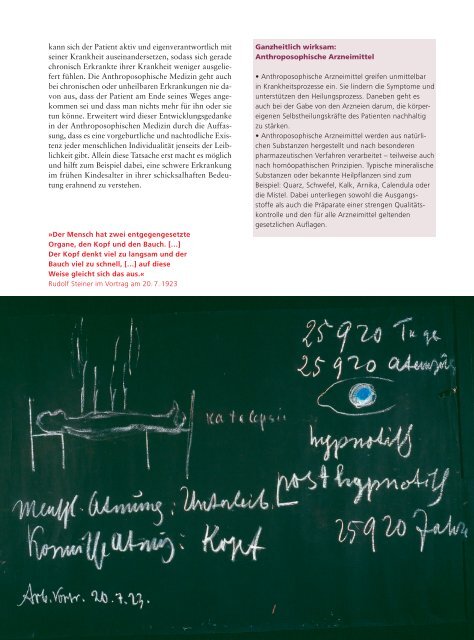 kann sich der Patient aktiv und eigenverantwortlich mit
seiner Krankheit auseinandersetzen, sodass sich gerade
chronisch Erkrankte ihrer Krankheit weniger ausgelie-
fert fühlen. Die Anthroposophische Medizin geht auch
bei chronischen oder unheilbaren Erkrankungen nie da-
von aus, dass der Patient am Ende seines Weges ange-
kommen sei und dass man nichts mehr für ihn oder sie
tun könne. Erweitert wird dieser Entwicklungsgedanke
in der Anthroposophischen Medizin durch die Auffas-
sung, dass es eine vorgeburtliche und nachtodliche Exis-
tenz jeder menschlichen Individualität jenseits der Leib-
lichkeit gibt. Allein diese Tatsache erst macht es möglich
und hilft zum Beispiel dabei, eine schwere Erkrankung
im frühen Kindesalter in ihrer schicksalhaften Bedeu-
tung erahnend zu verstehen.
»Der Mensch hat zwei entgegengesetzte
Organe, den Kopf und den Bauch. […]
Der Kopf denkt viel zu langsam und der
Bauch viel zu schnell, […] auf diese
Weise gleicht sich das aus.«
Rudolf Steiner im Vortrag am 20. 7. 1923
Ganzheitlich wirksam:
Anthroposophische Arzneimittel
• Anthroposophische Arzneimittel greifen unmittelbar
in Krankheitsprozesse ein. Sie lindern die Symptome und
unterstützen den Heilungsprozess. Daneben geht es
auch bei der Gabe von den Arzneien darum, die körper-
eigenen Selbstheilungskräfte des Patienten nachhaltig
zu stärken.
• Anthroposophische Arzneimittel werden aus natürli-
chen Substanzen hergestellt und nach besonderen
pharmazeutischen Verfahren verarbeitet – teilweise auch
nach homöopathischen Prinzipien. Typische mineralische
Substanzen oder bekannte Heilpflanzen sind zum
Beispiel: Quarz, Schwefel, Kalk, Arnika, Calendula oder
die Mistel. Dabei unterliegen sowohl die Ausgangs-
stoffe als auch die Präparate einer strengen Qualitäts-
kontrolle und den für alle Arzneimittel geltenden
gesetzlichen Auflagen.
25920 Tage
25920 Atemzüge
Katalepsie
hypnotisch
posthypnotisch
Menschl. Atmung: Unterleib
Atmung: Kopf
25920 Jahre
Arb. Vortr. 20.7.23.